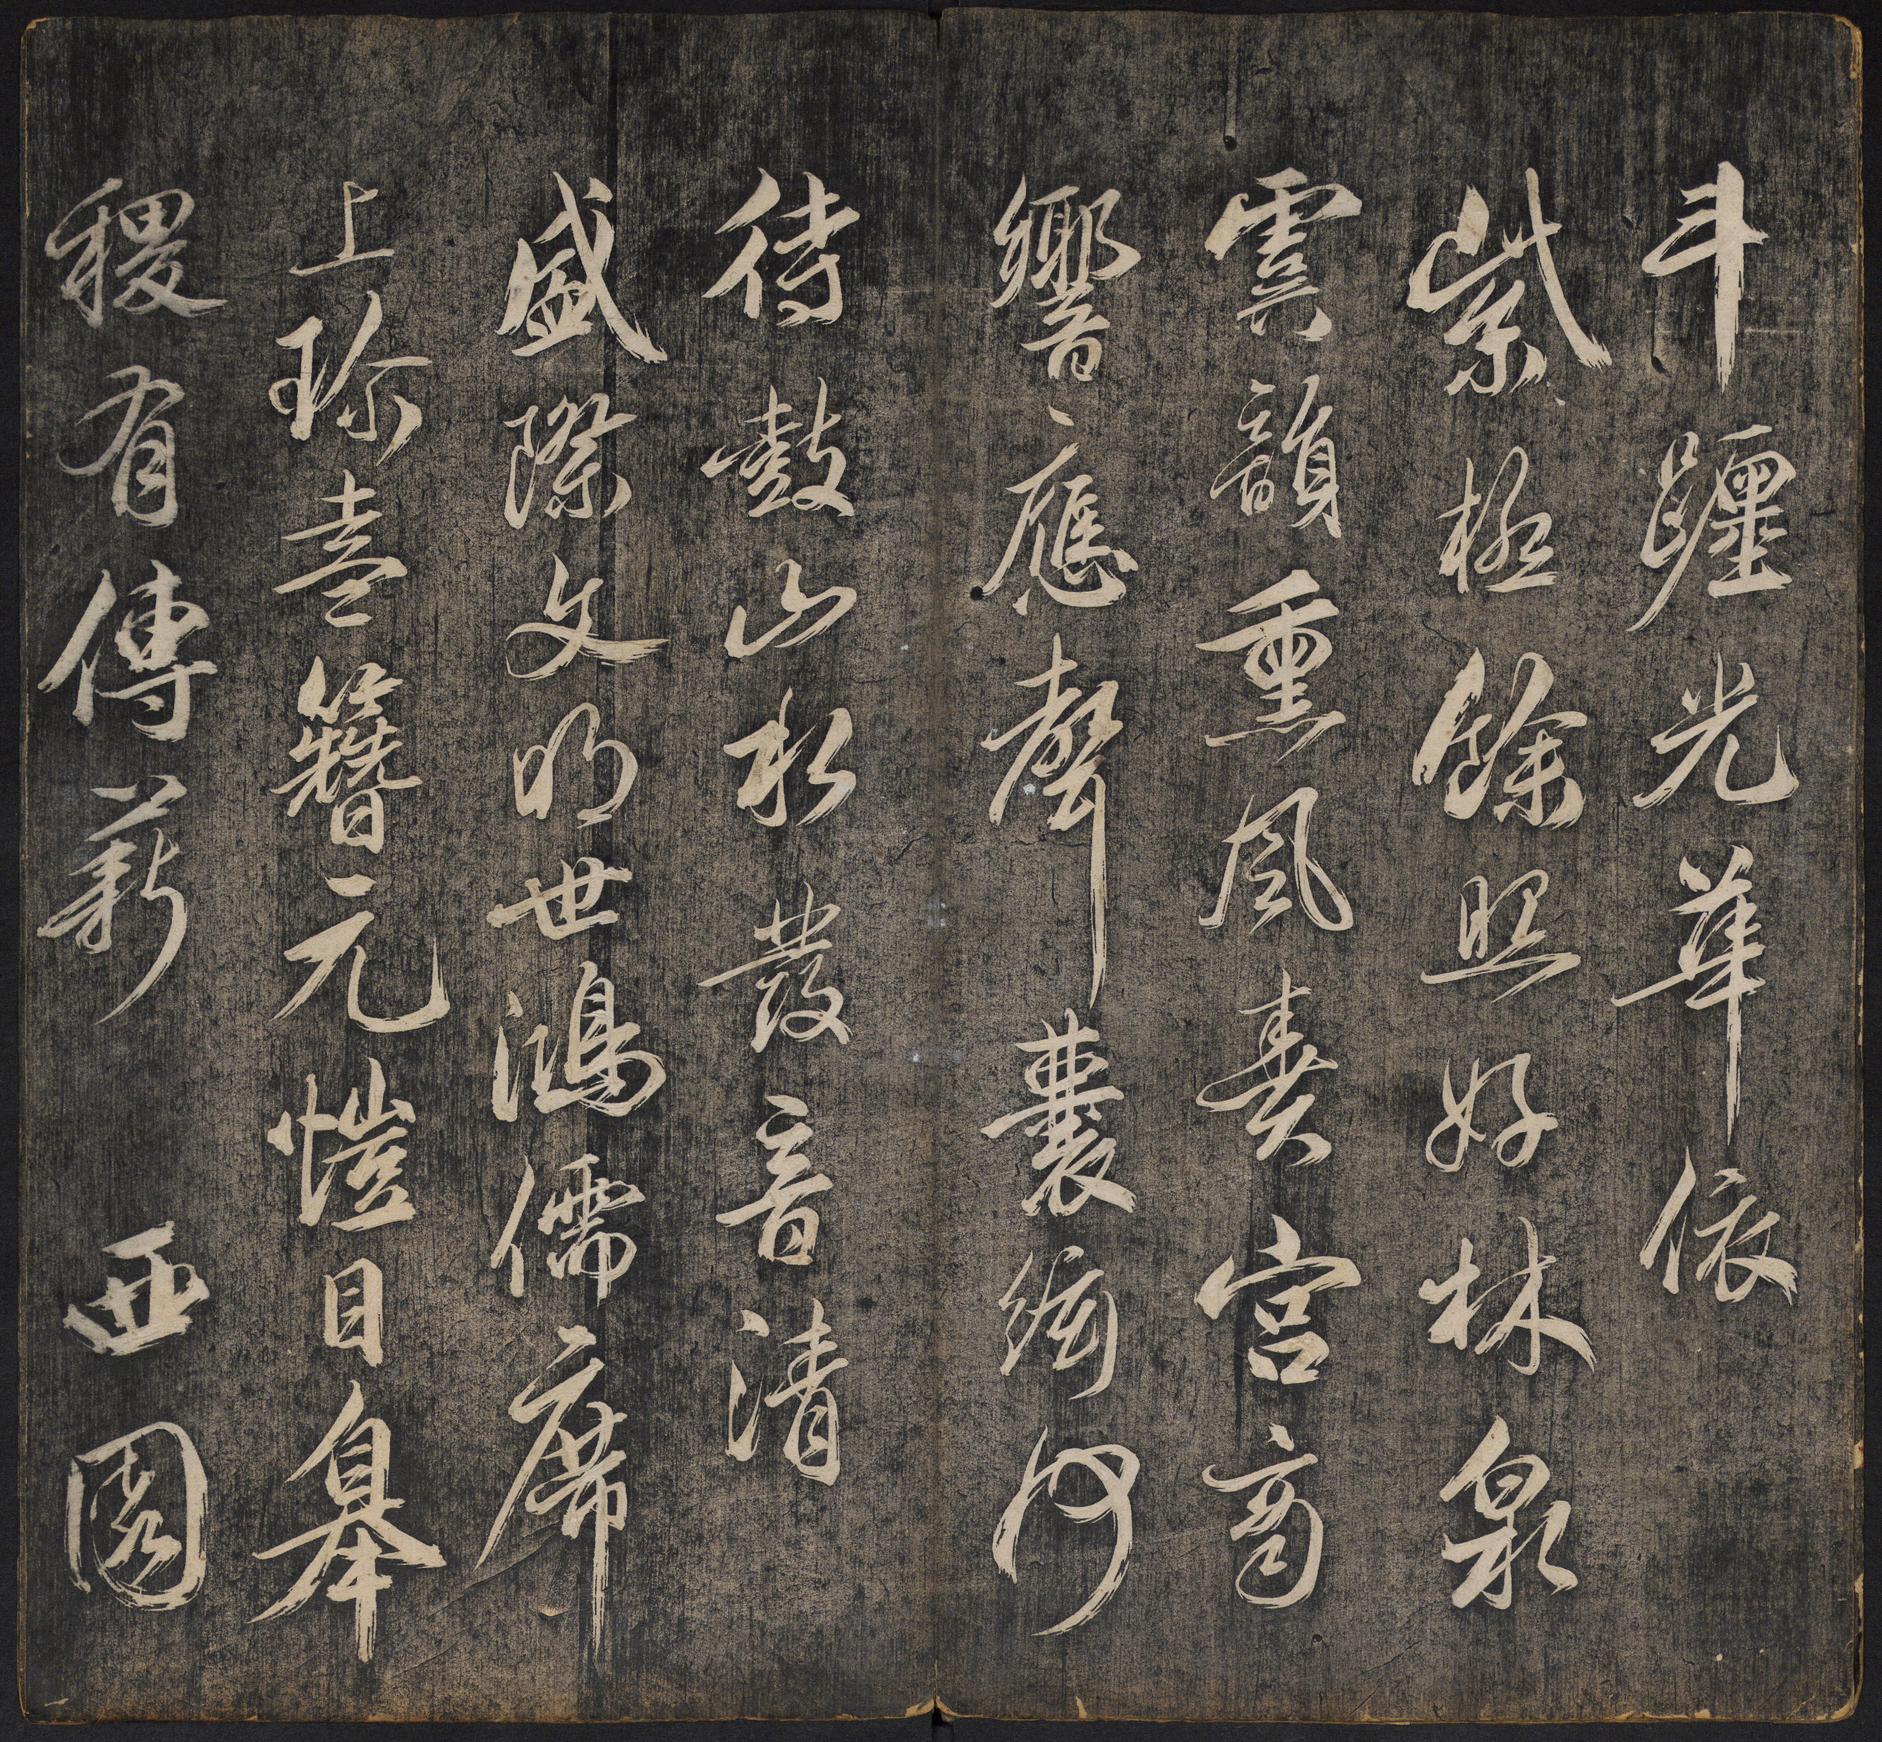 斗躔光華依
紫極餘照好林泉
雲韻熏風奏宮商
響應聲囊絃何
待鼓山水發音清
盛際文明世鴻儒席
上珍盍簪元愷目皋
稷有傳薪　西園